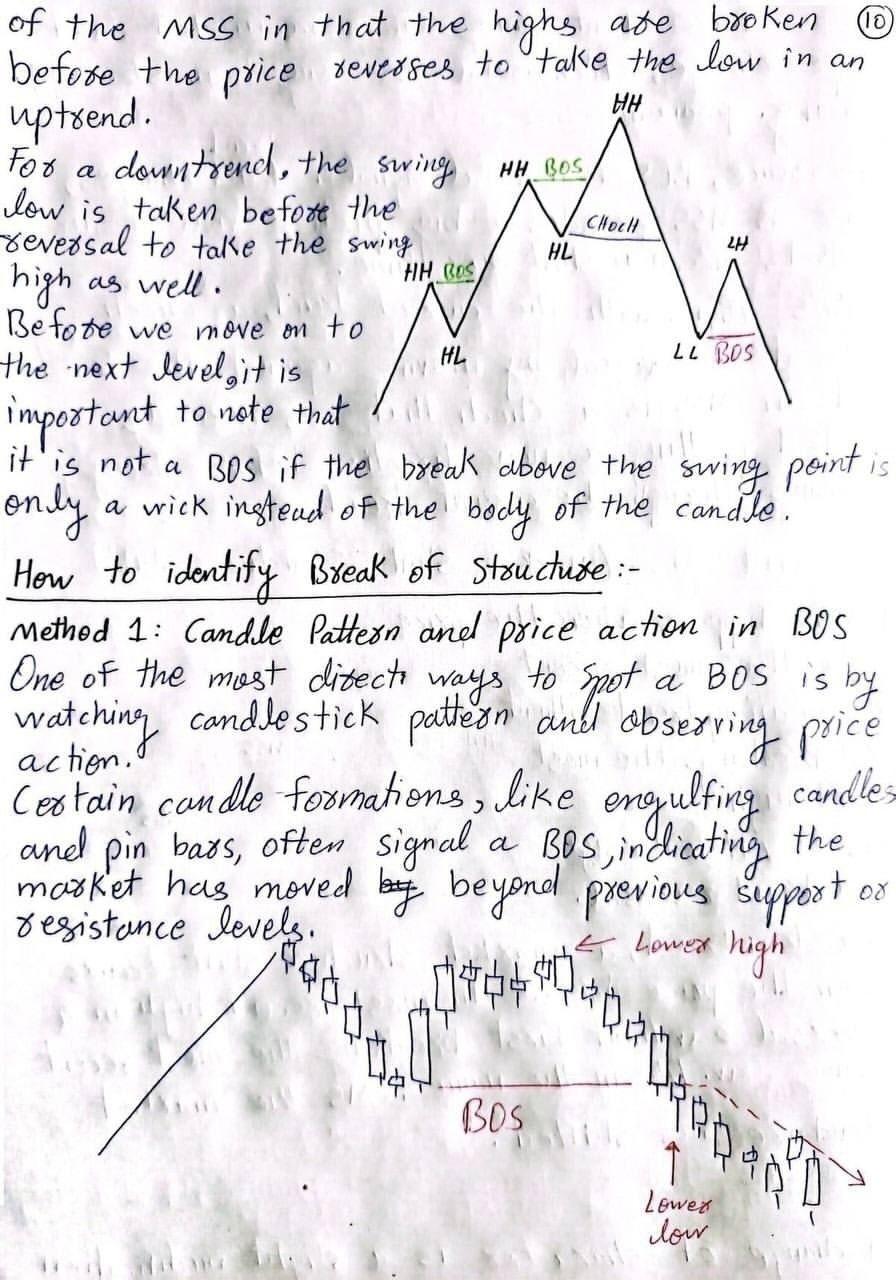 of the MSS in that the highs are broken 10
before the price reverses to take the low in an
uptrend.
For a downtrend, the swing
low is taken before the
reversal to take the swing
high as well.
Before we move on to
the next level, it is
important to note that
it is not a BOS if the break above the swing point is
only a wick instead of the body of the candle.
HH
HH BOS
CHocH
HL
LH
HH BOS
HL
LL BOS
How to identify Break of Structure :-
Method 1: Candle Pattern and price action in BOS
One of the most direct ways to spot a BOS is by
watching candlestick pattern and observing price
action.
Certain candle formations, like engulfing candles
and pin bars, often signal a BOS, indicating the
market has moved by beyond previous support or
resistance levels.
Lower high
BOS
Lower
low